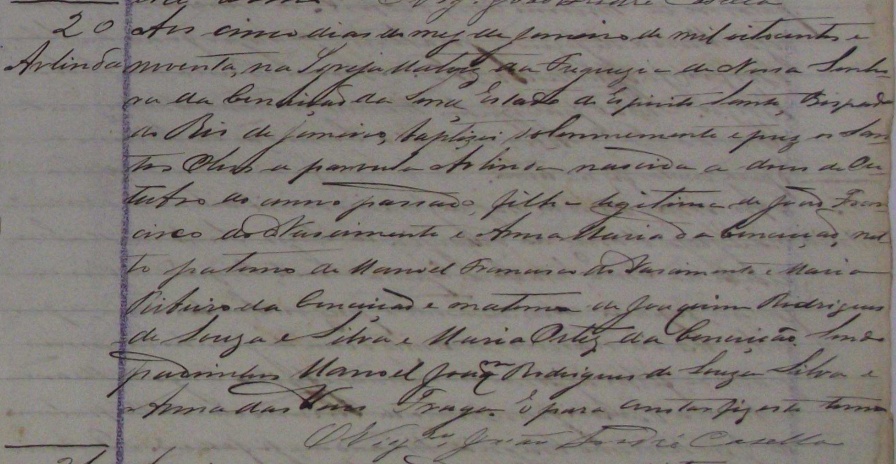 20 Aos cinco dias do mez de Janeiro de mil oitocentos e
Arlinda noventa, na Igreja Matriz da Freguezia de Nossa Senho
ra da Conceição da Serra, Estado do Espirito Santo, Bispado
do Rio de Janeiro, baptizei solemnemente e puz os San
tos Oleos a parvula Arlinda nascida a dous de Ou
tubro do anno passado, filha legitima de João Fran
cisco do Nascimento e Anna Maria da Conceição, nét
to paterno de Manoel Francisco do Nascimento e Maria
Ribeiro da Conceição e materno de Joaquim Rodrigues
de Souza e Silva e Maria Ortiz da Conceição. Sendo
padrinhos Manoel Joaqm Rodrigues de Souza Silva e
Anna das Fraga. E para constar fiz este termo
O Vigro João Casella